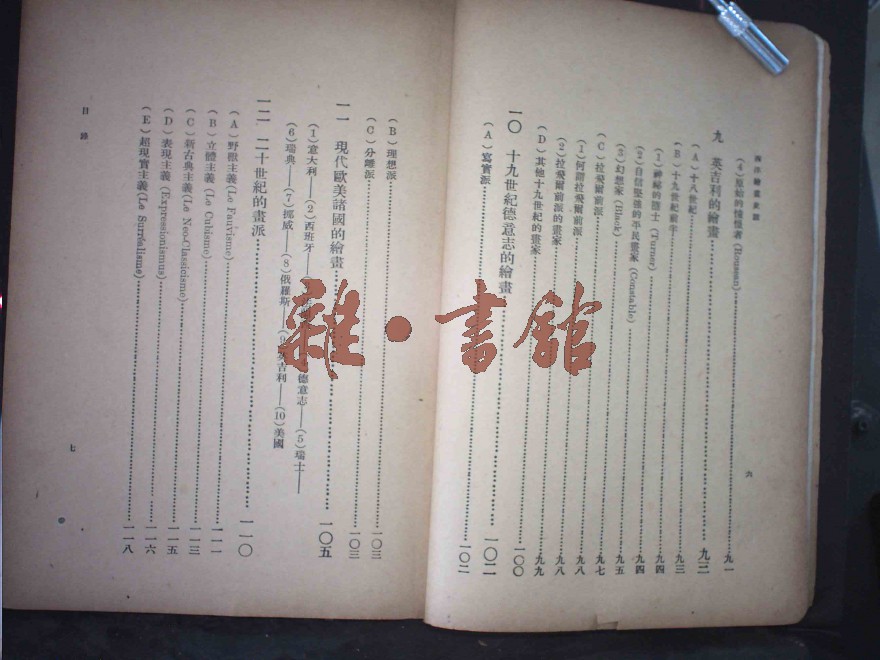 西洋繪畫史話
六
(4)原始的憧憬者(Roussau)……九一
九 英吉利的繪畫……九三
(A)十八世紀……九三
(B)十九世紀前半……九四
(1)神秘的隱士(Turner)……九四
(2)自信堅強的平民畫家(Constable)……九四
(3)幻想家(Black)……九五
(C)拉飛爾前派……九七
(1)何謂拉飛爾前派……九八
(2)拉飛爾前派的畫家……九八
(D)其他十九世紀的畫家……九九
一〇 十九世紀德意志的繪畫……一〇〇
(A)寫實派……一〇二
(B)理想派……一〇三
(C)分離派……一〇三
一一 現代歐美諸國的繪畫……一〇五
(1)意大利——(2)西班牙——德意志——(5)瑞士——
(6)瑞典——(7)挪威——(8)俄羅斯——吉利——(10)美國
一二 二十世紀的畫派……一一〇
(A)野獸主義(Le Fauvisme)……一一〇
(B)立體主義(Le Cubisme)……一一一
(C)新古典主義(Le Neo-Classicisme)……一一三
(D)表現主義(Expressionismus)……一一五
(E)超現實主義(Le Surréalisme)……一一六
一一八
目錄
七
雜·書館